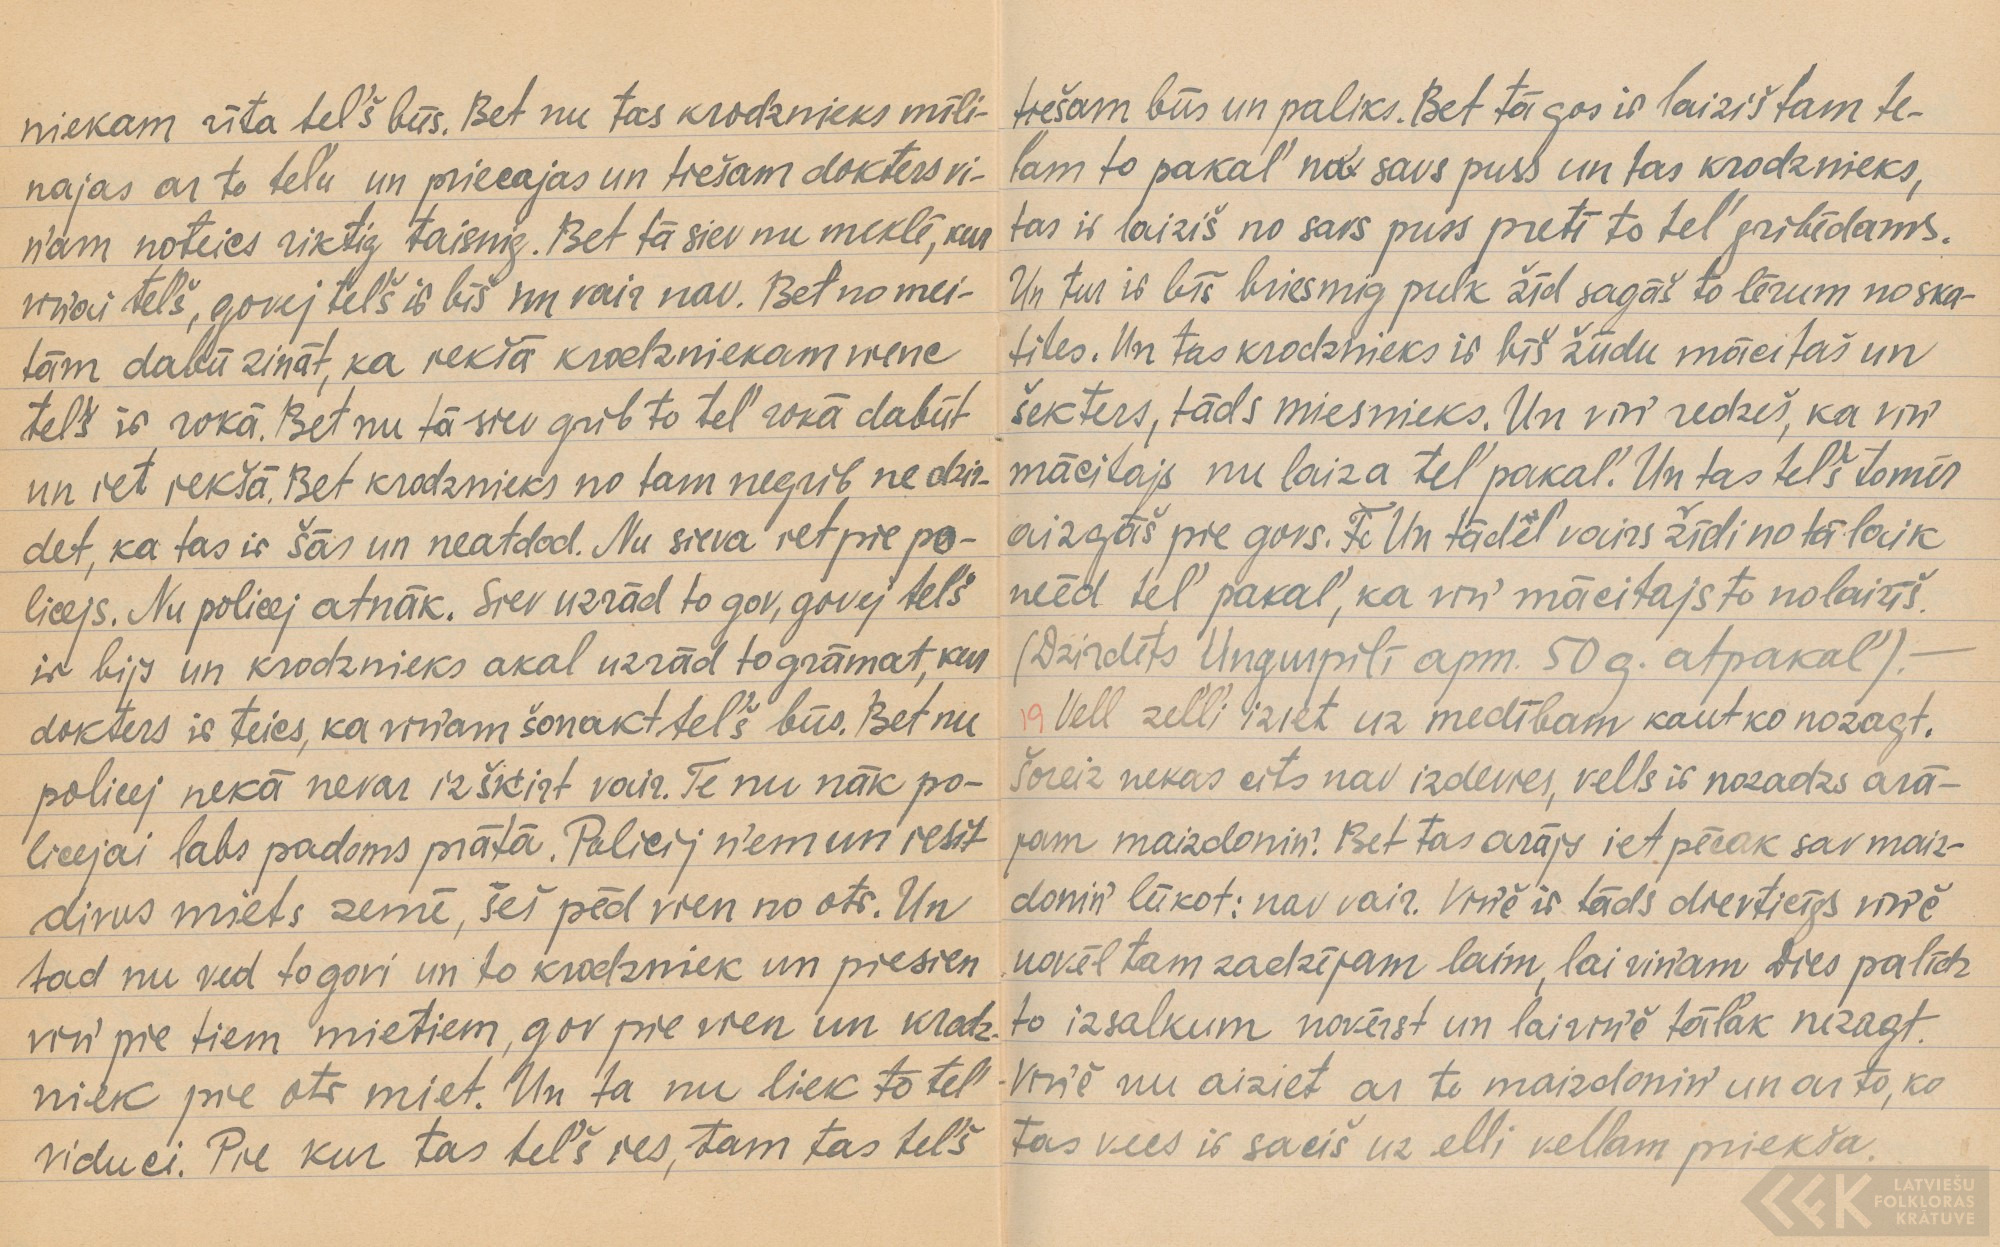 niekam rīta teļ'š būs. Bet nu tas krodznieks mīli-
najas ar to teļu un priecajas un trešam dokters vi-
ņ'am noteics riktig taisnig. Bet tā siev nu meklē, kur
viņ'ai teļ'š, govej teļ'š ir bīš un vair nav. Bet no mei-
tām dabū zināt, ka iekšā krodzniekam viene
teļ'š ir rokā. Bet nu tā siev grib to teļ' rokā dabūt
un iet iekšā. Bet krodznieks no tam negrib ne dzir-
det, ka tas ir šās un neatdod. Nu sieva iet pie po-
licejs. Nu policej atnāk. Siev uzrād to gov, govej teļ'š
ir bijs un krodznieks akal uzrād to grāmat, kur
dokters ir teics, ka viņ'am šonakt teļ'š būs. Bet nu
policej nekā nevar izšķirt vair. Te nu nāk po-
licejai labs padoms prātā. Policij ņ'em un iesit
divus miets zemē, šeš pēd vien no otr. Un
tad nu ved to govi un to krodzniek un piesien
viņ' pie tiem mietiem, gov pie vien un krodz-
niek pie otr miet. Un ta nu liek to teļ'
viduci. Pie kur tas teļ'š ies, tam tas teļ'š
trešam būs un paliks. Bet tā gos ir laiziš tam te-
ļam to pakaļ' no savs puss un tas krodznieks,
tas ir laiziš no savs puss pretī to teļ' gribēdams.
Un tur ir bīš briesmig pulk žīd sagāš to lērum noska-
tites. Un tas krodznieks ir bīš žūdu mācitaš un
šekters, tāds miesnieks. Un viņ' redzeš, ka viņ'
mācitajs nu laiza teļ' pakaļ'. Un tas teļ'š tomēr
aizgāš pie govs. Un tādēļ vairs žīdi no tā laik
neēd teļ' pakaļ', ka viņ' mācitajs to nolaizīš.
(Dzirdēts Ungurpilī apm. 50 g. atpakaļ').—
19 Vell zeļļi iziet uz medībam kaut ko nozagt.
Šoreiz nekas cits nav izdevies, vells ir nozadzs arā-
jam maizdoniņ'. Bet tas arājs iet pēcak sav maiz-
doniņ' lūkot: nav vair. Viņ'ě ir tāds dievticīgs viņ'ě
novēl tam zadzējam laim, lai viņ'am Dies palīdz
to izsalkum novērst un lai viņ'ě tāļ'ak nezagt.
Viņ'ě nu aiziet ar to maizdoniņ' un ar to, ko
tas vecs ir saciš uz elli vellam priekša.
LATVIEŠU
FOLKLORAS
KRĀTUVE